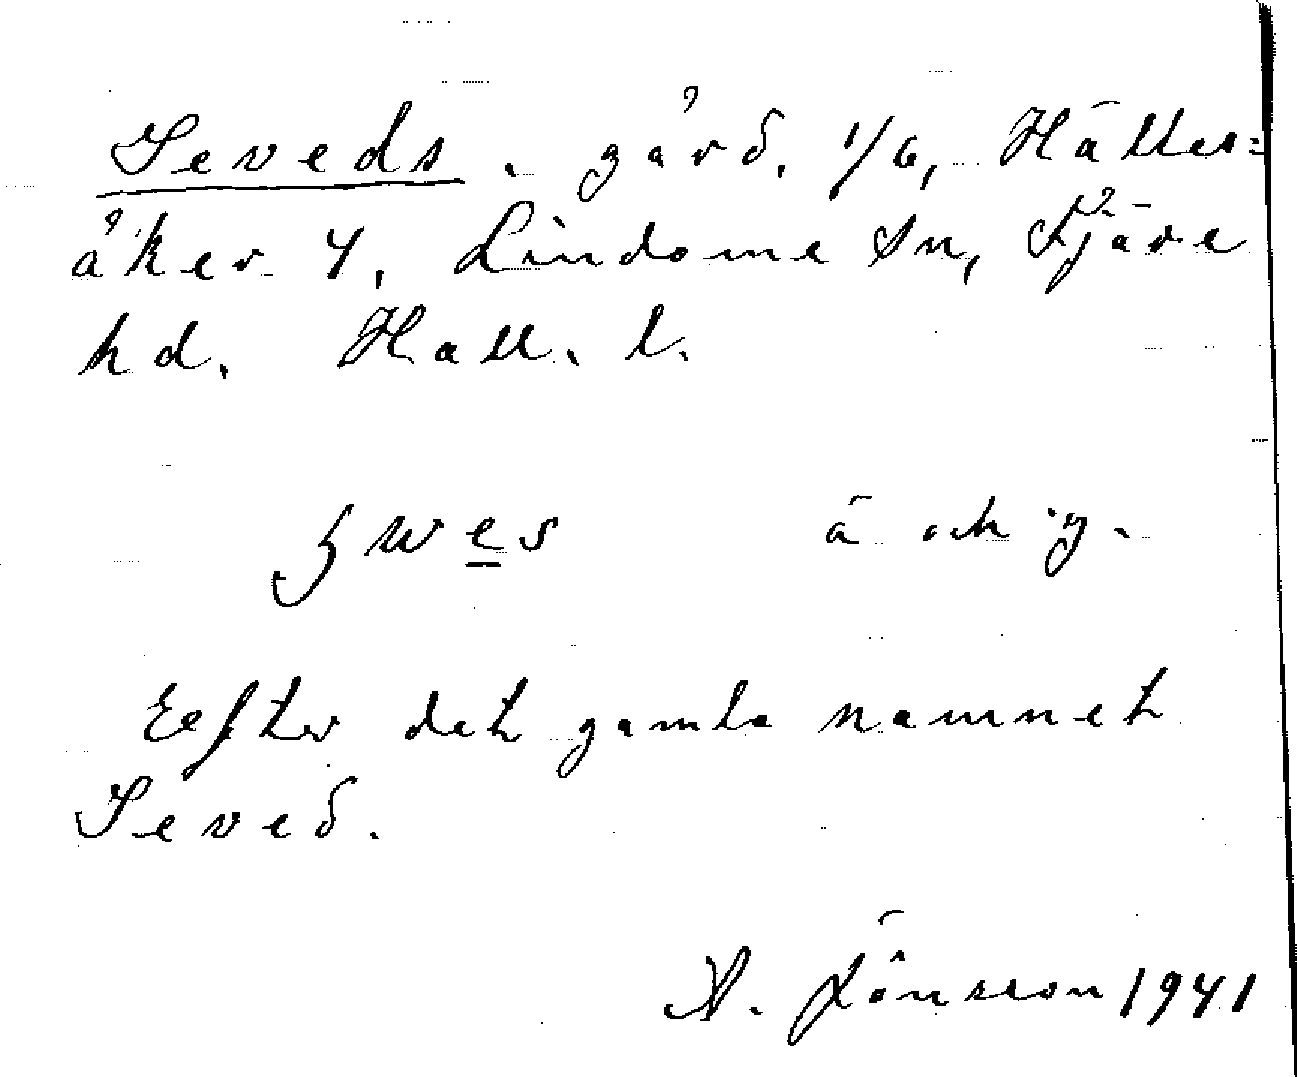 Seveds. gård, 1/6, Hälles=
åker 4, Lindome sn, Fjäre
hd. Hall. l.
swes ä och y.
Eefter det gamla namnet
Seved.
A. Jönsson 1941